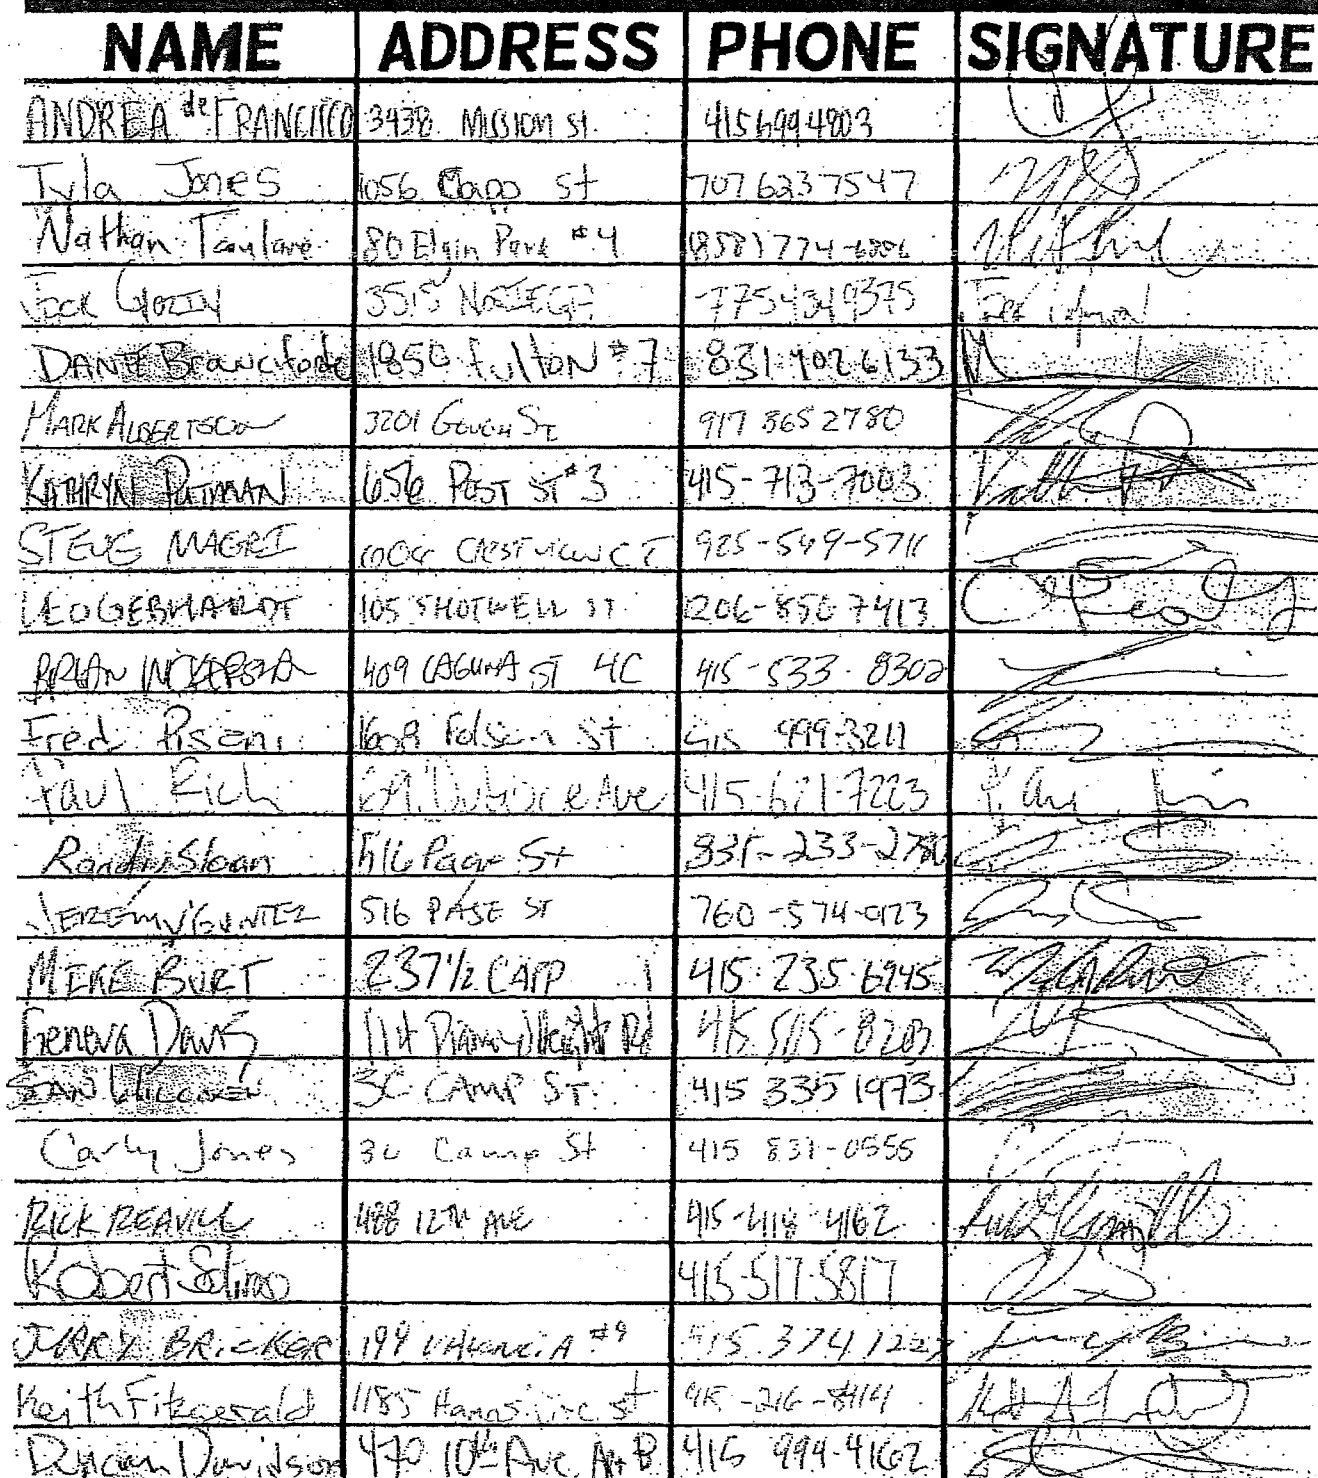 NAME ADDRESS PHONE SIGNATURE
ANDREA de FRANCISCO 3438 MISSION ST. 415 699 4803
Tyla Jones 1056 Capp St 707 623 7547
Nathan 80 Elgin Park #4 (858) 774-6886
Jack 3515 NORIEGA 775 434 9375
DANTE Branciforte 1850 fulton #7 831 402 6133
MARK ALBERTSON 3201 GOUGH ST 917 865 2780
KATHRYN PUTMAN 656 POST ST #3 415-713-7003
STEVE MAGRI CRESTVIEW CT 925-549-5711
LEO GEBHARDT 105 SHOTWELL ST 206-850 7413
BRIAN 409 LAGUNA ST 4C 415-533-8302
Fred Pisani 1608 Folsom St 415 999-3211
Paul Rich Duboce Ave 415-621-7223
Randy Sloan 516 Page St 831-233-2780
JEREMY 516 PAGE ST 760-574-0123
MIKE BURT 237 1/2 CAPP 415-235-6945
Geneva Davis 415 515-8203
3C CAMP ST. 415 335 1973
Carly Jones 3C Camp St 415 831-0555
RICK REAVILL 488 12TH AVE 415-418-4162
Robert 415-517-5817
JERRY BRICKER 199 VALENCIA #9 415 374 1227
Keith Fitzgerald 1185 Hampshire St 415-216-8414
Duncan Davidson 470 10th Ave Apt B 415 994-4162